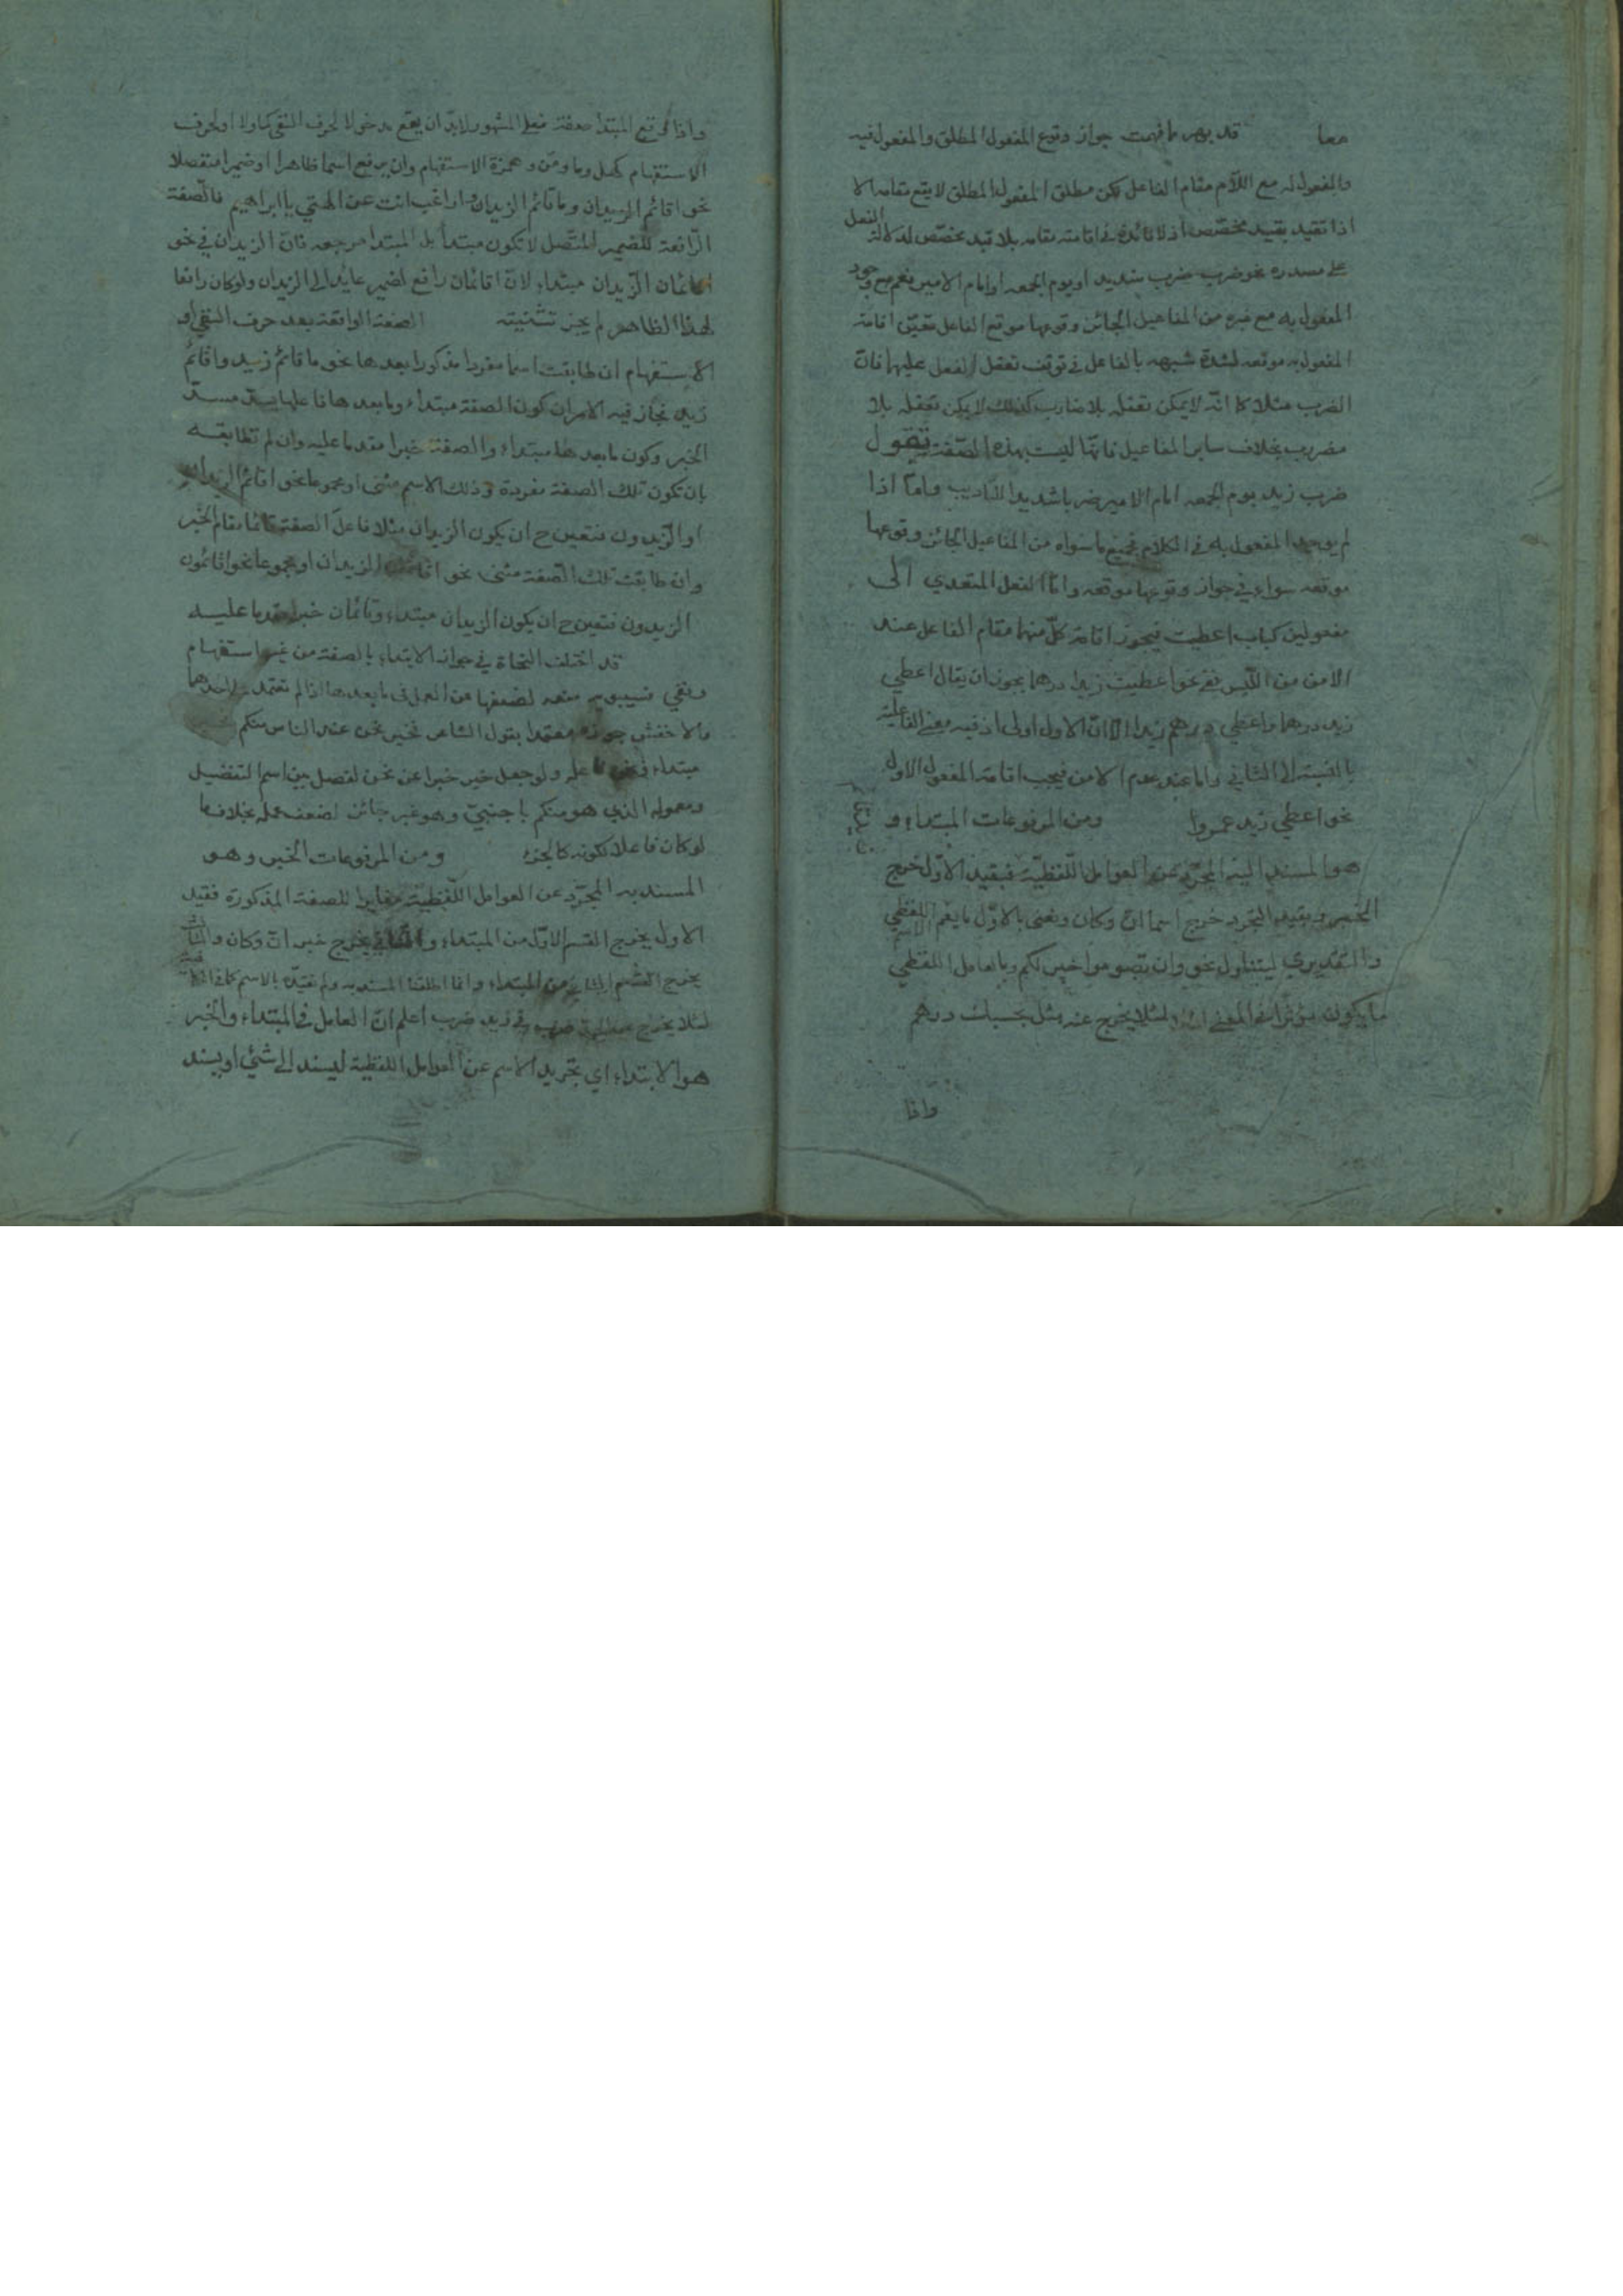 معا قد ظهر مما فهمت جواز وقوع المفعول المطلق والمفعول فيه
والمفعول له مع اللام مقام الفاعل لكن مطلق المفعول المطلق لا يقع مقامه الا
اذا تقيد بقيد مخصص اذ لا فائدة في اقامته مقامه بلا قيد مخصص لدلالة الفعل
على مصدره نحو ضرب ضرب شديد او يوم الجمعه او امام الامير نعم مع وجود
المفعول به مع غيره من المفاعيل الجائز وقوعها موقع الفاعل تعين اقامة
المفعول به موقعه لشدة شبهه بالفاعل في توقف تعقل الفعل عليهما فان
الضرب مثلا كما انه لا يمكن تعقله بلا ضارب كذلك لا يمكن تعقله بلا
مضروب بخلاف ساير المفاعيل فانها ليست بهذه الصفة تقول
ضرب زيد يوم الجمعه امام الامير ضربا شديدا للتاديب واما اذا
لم يوجد المفعول به في الكلام فجميع ما سواه من المفاعيل الجائز وقوعها
موقعه سواء في جواز وقوعها موقعه واما الفعل المتعدي الى
مفعولين كباب اعطيت فيجوز اقامة كل منهما مقام الفاعل عند
الامن من اللبس ففي نحو اعطيت زيدا درهما يجوز ان يقال اعطي
زيد درهما واعطي درهم زيدا الا ان الاول اولى اذ فيه معنى الفاعلية
بالنسبة الى الثاني واما عند عدم الامن فيجب اقامة المفعول الاول
نحو اعطي زيد عمروا ومن المرفوعات المبتداء و
هو المسند اليه المجرد عن العوامل اللفظية فبقيد الاول خرج
الخبر وبقيد التجرد خرج اسما ان وكان ونعني بالاول ما يعم اللفظي
والتقديري ليتناول نحو وان تصوموا خير لكم وبالعامل اللفظي
ما يكون مؤثرا في المعنى لئلا يخرج عنه مثل بحسبك درهم
واذا
واذا وقع المبتدا صفة فعلى المشهور لابد ان يقع مدخولا لحرف النفي كما ولا او لحرف
الاستفهام كهل وما ومن وهمزة الاستفهام وان يرفع اسما ظاهرا او ضميرا منفصلا
نحو اقائم الزيدان وما قائم الزيدان واراغب انت عن الهتي يا ابراهيم فالصفة
الرافعة للضمير المتصل لا تكون مبتدأ بل المبتدا مرجعه فان الزيدان في نحو
اقائمان الزيدان مبتداء لان اقائمان رافع لضمير عايد الى الزيدان ولو كان رافعا
لهذا الظاهر لم يجز تثنيته الصفة الواقعة بعد حرف النفي او
الاستفهام ان طابقت اسما مفردا مذكورا بعدها نحو ما قائم زيد واقائم
زيد فجاز فيه الامران كون الصفة مبتداء وما بعدها فاعلها يسد مسد
الخبر وكون ما بعدها مبتداء والصفة خبرا مقدما عليه وان لم تطابقه
بان تكون تلك الصفة مفردة وذلك الاسم مثنى او مجموعا نحو اقائم الزيدان
او الزيدون فتعين ح ان يكون الزيدان مثلا فاعل الصفة قائما مقام الخبر
وان طابقت تلك الصفة مثنى نحو اقائمان الزيدان او مجموعا نحو اقائمون
الزيدون فتعين ح ان يكون الزيدان مبتداء وقائمان خبرا مقدما عليه
قد اختلف النحاة في جواز الابتداء بالصفة من غير استفهام
ونفي فسيبويه منعه لضعفها عن العمل في ما بعدها اذا لم تعتمد على احدهما
والاخفش جوزه معتمدا بقول الشاعر فخير نحن عند الناس منكم فخير
مبتداء فنحن فاعله ولو جعل خير خبرا عن نحن لفصل بين اسم التفضيل
ومعموله الذي هو منكم باجنبي وهو غير جائز لضعف عمله بخلاف ما
لو كان فاعلا لكونه كالجزء ومن المرفوعات الخبر وهو
المسند به المجرد عن العوامل اللفظية مغايرا للصفة المذكورة فقيد
الاول يخرج القسم الاول من المبتداء والثاني يخرج خبر ان وكان والثالث
يخرج القسم الثاني من المبتداء وانما اطلقنا المسند به ولم نقيده بالاسم كما في
لئلا يخرج عنه ضرب في زيد ضرب اعلم ان العامل في المبتداء والخبر
هو الابتداء اي تجريد الاسم عن العوامل اللفظية ليسند الى شيء او يسند